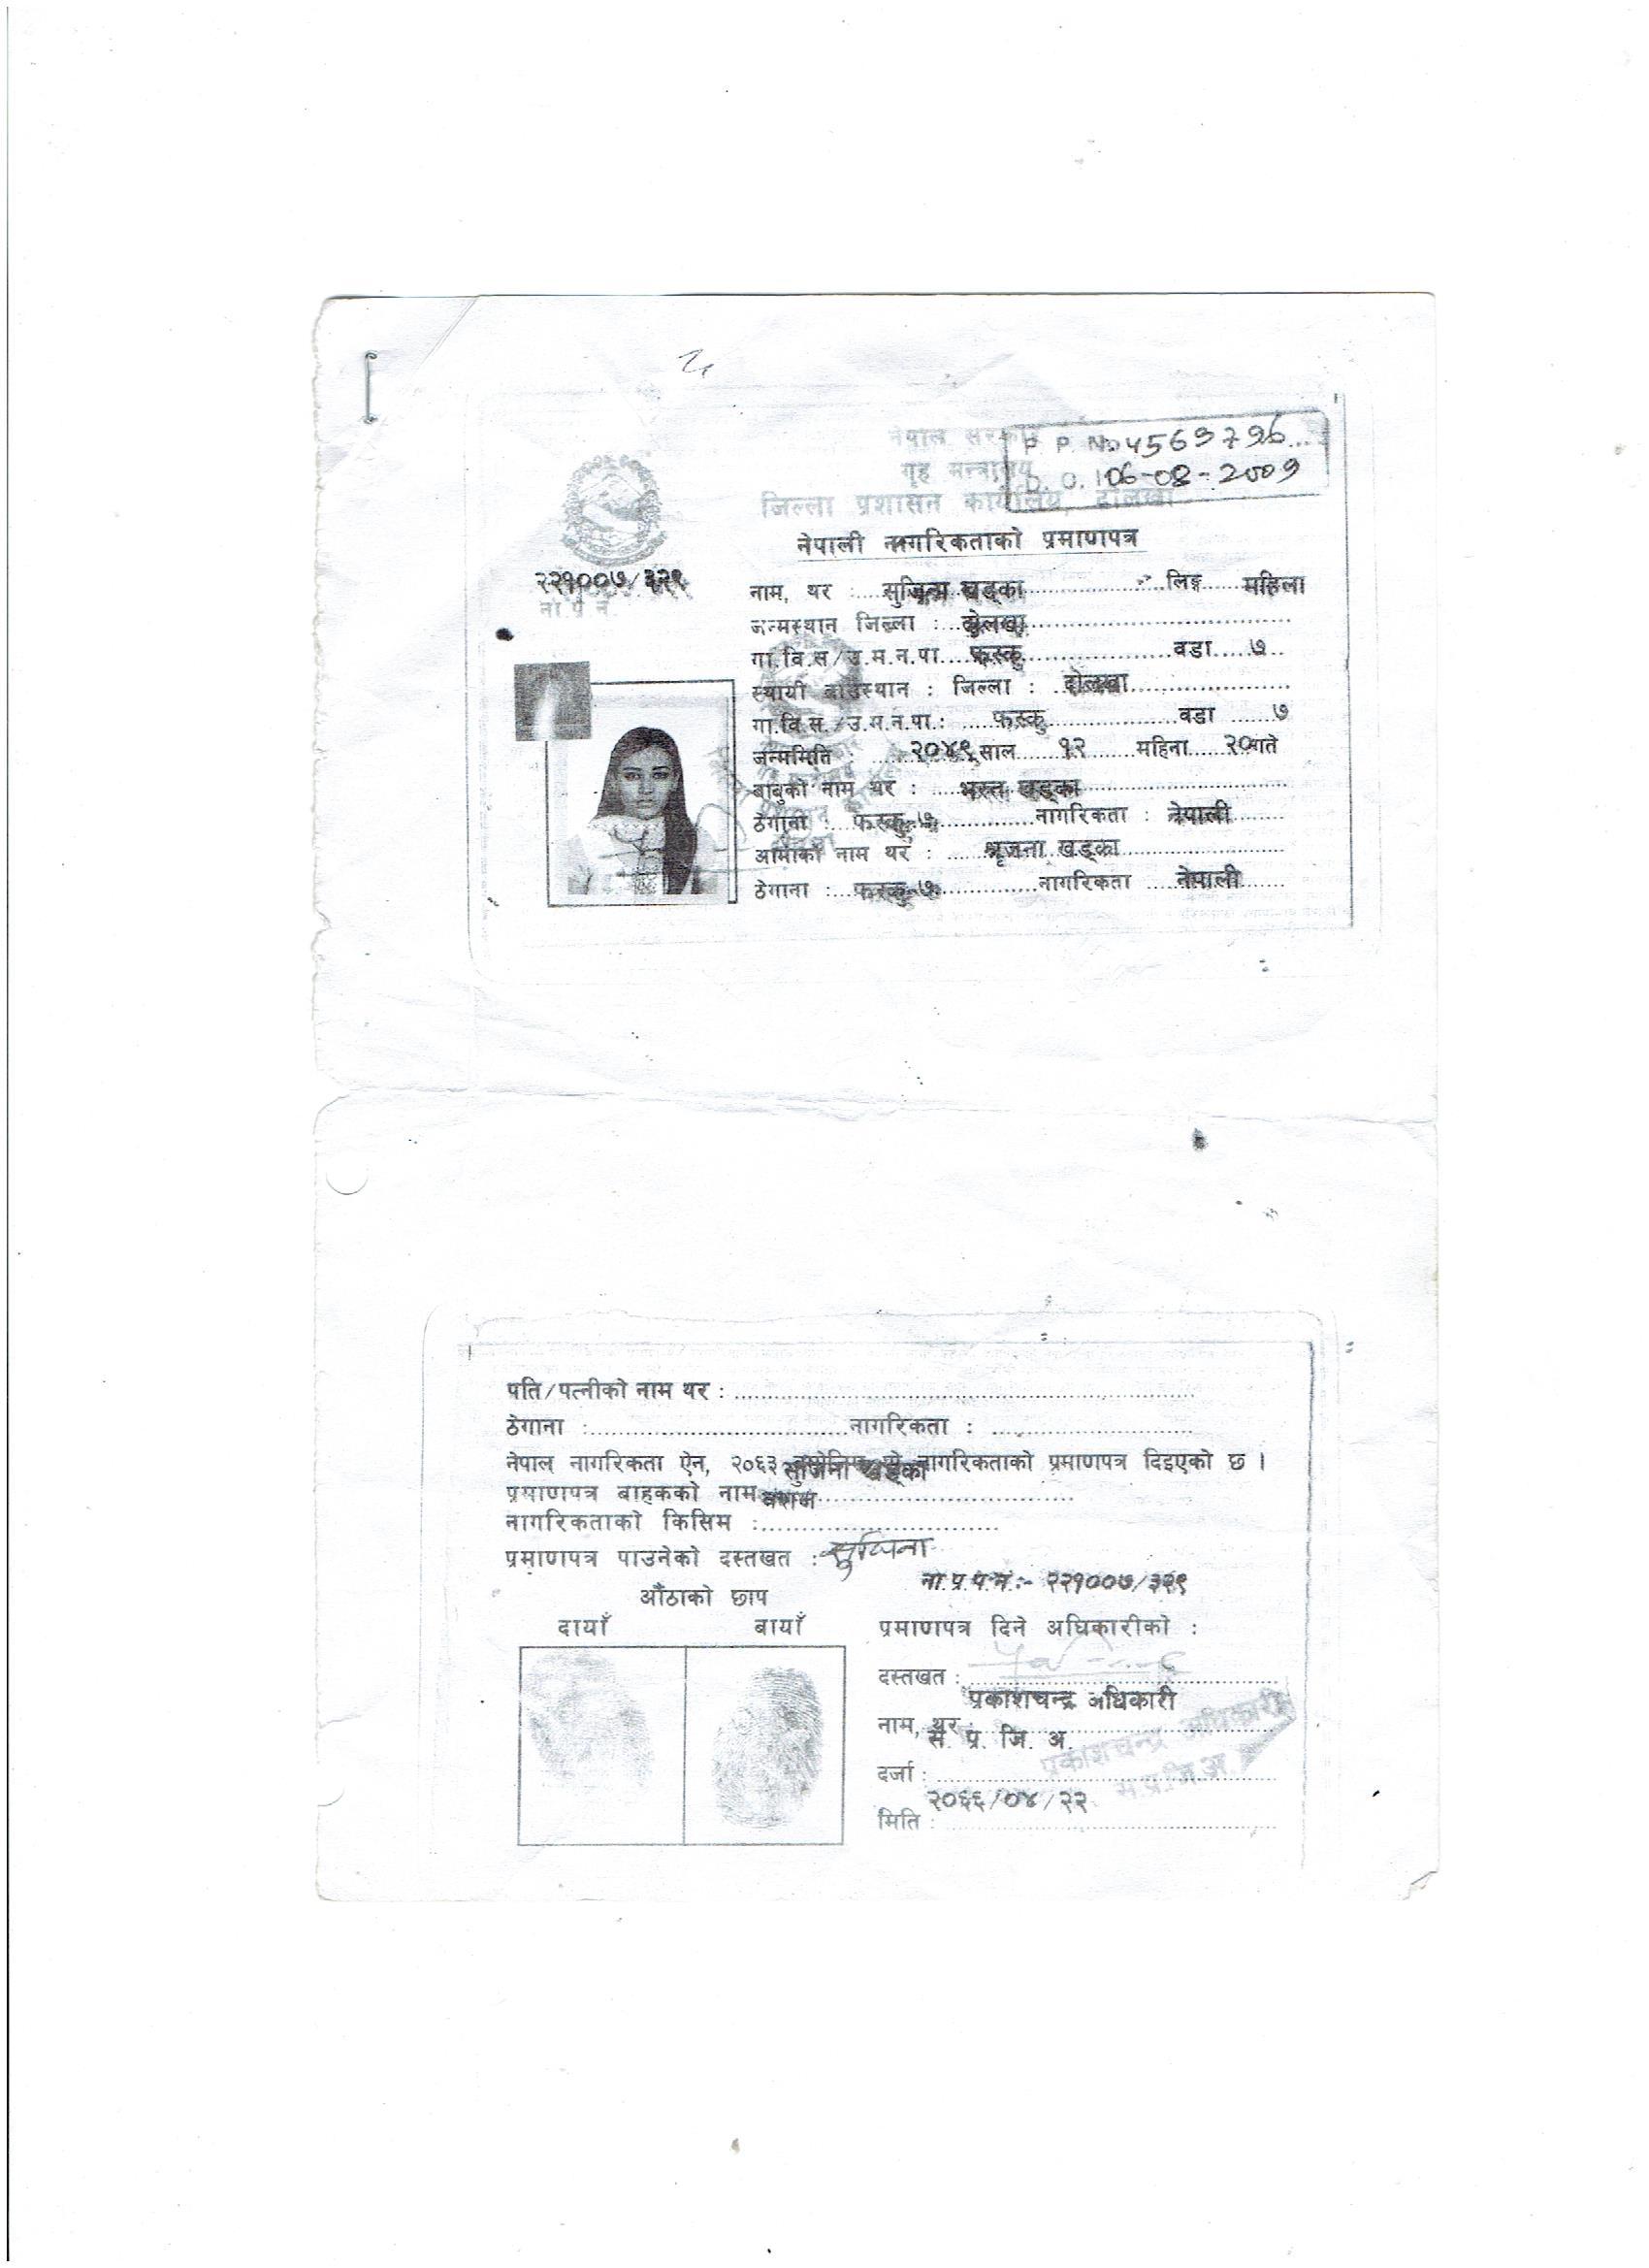 नेपाल सरकार
गृह मन्त्रालय
जिल्ला प्रशासन कार्यालय, दोलखा
P. P. No 4563796
D. O. I 06-08-2009
नेपाली नागरिकताको प्रमाणपत्र
२२१००७/३२९
ना.प्र.नं.
नाम, थर : सुजिना खड्का लिङ्ग महिला
जन्मस्थान जिल्ला : दोलखा
गा.वि.स/उ.म.न.पा. फस्कु वडा ७
स्थायी बासस्थान : जिल्ला : दोलखा
गा.वि.स./उ.म.न.पा.: फस्कु वडा ७
जन्ममिति : २०४९ साल १२ महिना २० गते
बाबुको नाम थर : भरत खड्का
ठेगाना : फस्कु-७ नागरिकता : नेपाली
आमाको नाम थर : श्रृजना खड्का
ठेगाना : फस्कु-७ नागरिकता नेपाली
पति/पत्नीको नाम थर :
ठेगाना : नागरिकता :
नेपाल नागरिकता ऐन, २०६३ नागरिकताको प्रमाणपत्र दिइएको छ ।
प्रमाणपत्र बाहकको नाम सुजिना खड्का
नागरिकताको किसिम : वंशज
प्रमाणपत्र पाउनेको दस्तखत : सुजिना
ना.प्र.प.नं.:- २२१००७/३२९
औंठाको छाप
दायाँ बायाँ
प्रमाणपत्र दिने अधिकारीको :
दस्तखत :
नाम, थर : प्रकाशचन्द्र अधिकारी
दर्जा : स. प्र. जि. अ.
मिति : २०६६/०४/२२
प्रकाशचन्द्र अधिकारी
स.प्र.जि.अ.